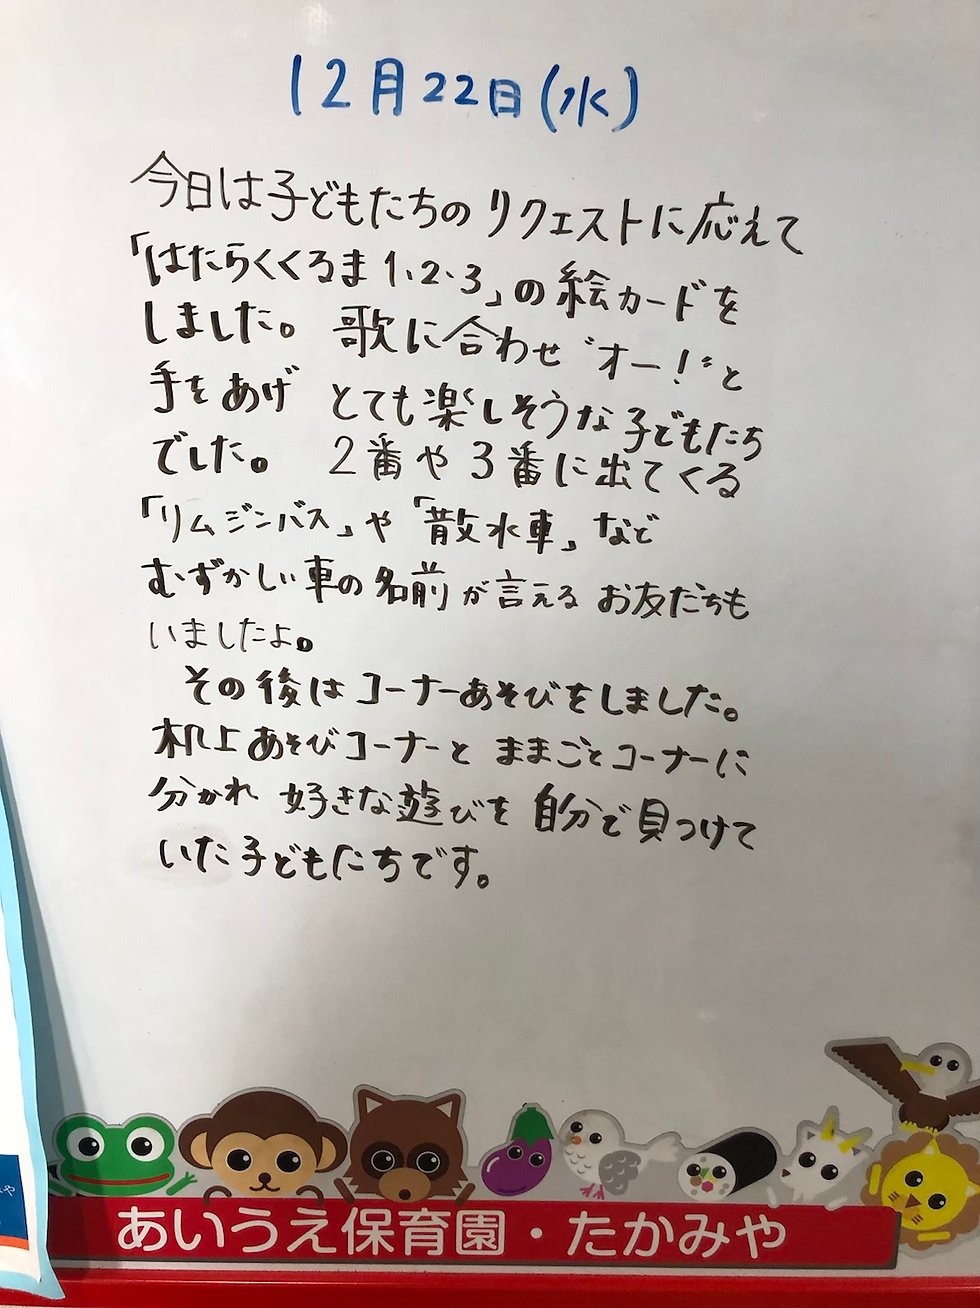 12月22日(水)
今日は子どもたちのリクエストに応えて
「はたらくくるま1・2・3」の絵カードを
しました。歌に合わせ“オー！”と
手をあげ とても楽しそうな子どもたち
でした。2番や3番に出てくる
「リムジンバス」や「散水車」など
むずかしい車の名前が言えるお友だちも
いましたよ。
その後はコーナーあそびをしました。
机上あそびコーナーとままごとコーナーに
分かれ 好きな遊びを自分で見つけて
いた子どもたちです。
あいうえ保育園・たかみや